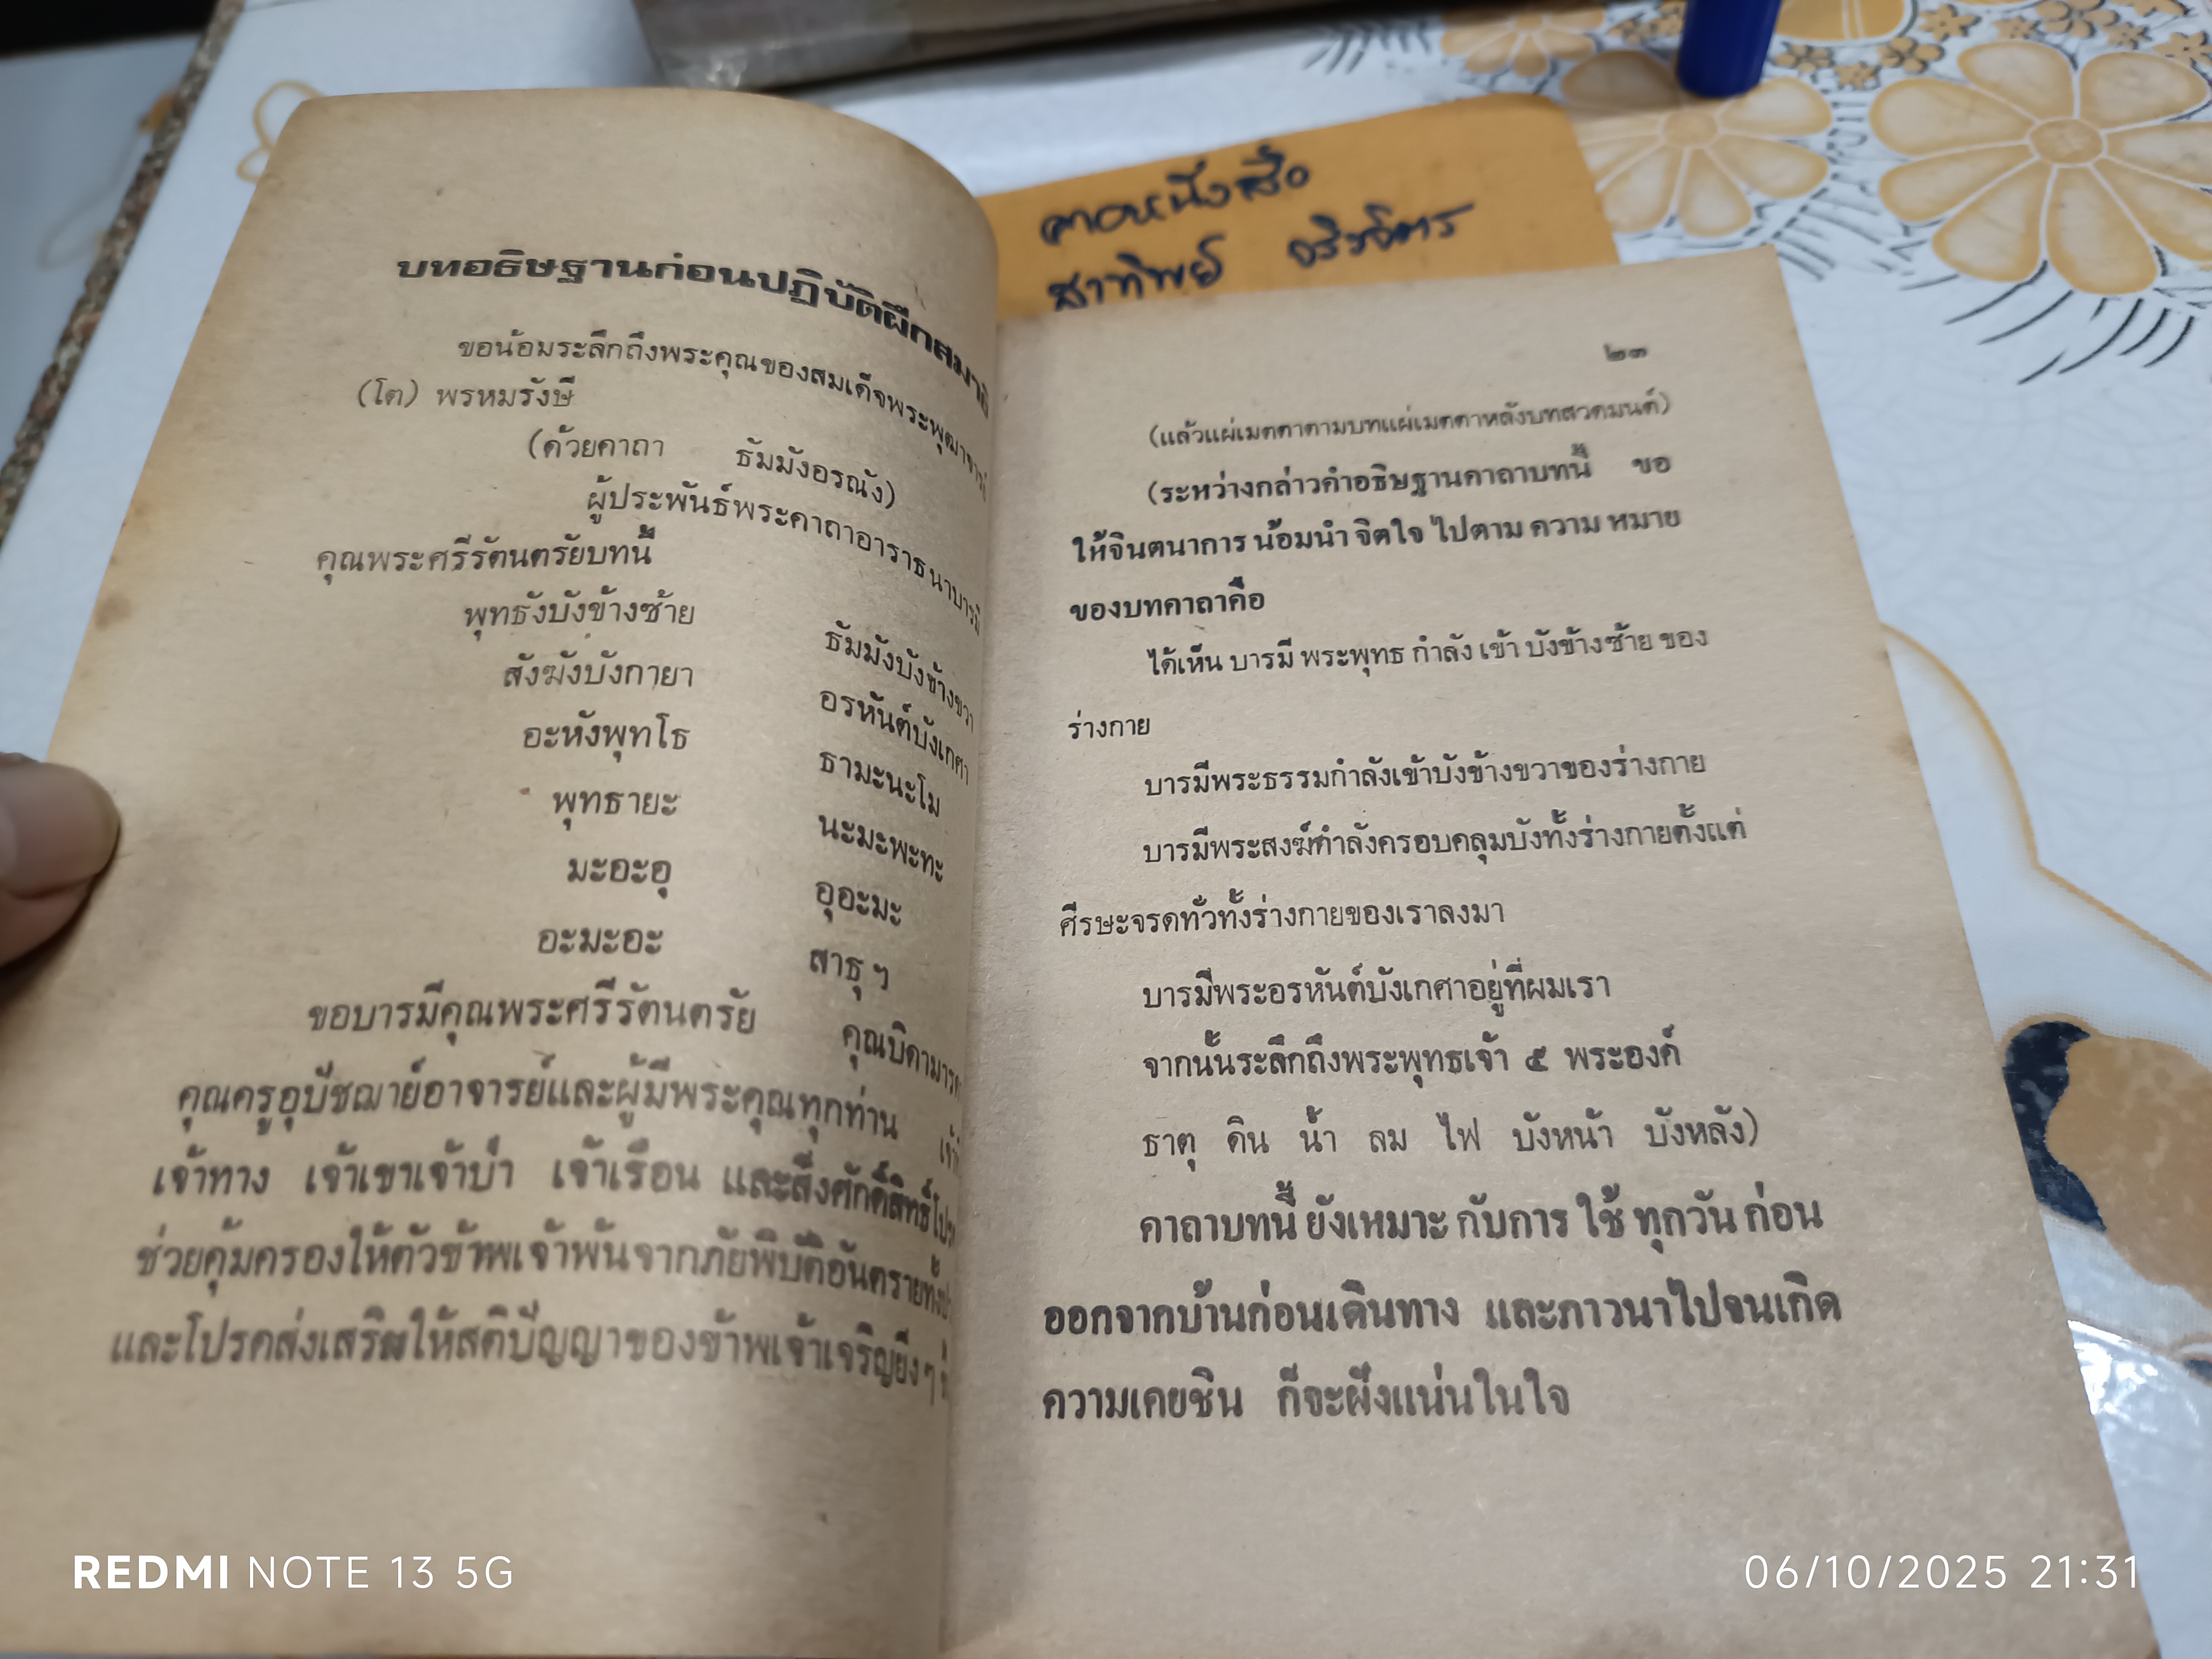 บทอธิษฐานก่อนปฏิบัติฝึกสมาธิ
ขอน้อมระลึกถึงพระคุณของสมเด็จพระพุฒาจารย์
(โต) พรหมรังษี
(ด้วยคาถา ธัมมังอรณัง)
ผู้ประพันธ์พระคาถาอาราธนาบารมี
คุณพระศรีรัตนตรัยบทนี้
พุทธังบังข้างซ้าย ธัมมังบังข้างขวา
สังฆังบังกายา อรหันต์บังเกศา
อะหังพุทโธ ธามะนะโม
พุทธายะ นะมะพะทะ
มะอะอุ อุอะมะ
อะมะอะ สาธุฯ
ขอบารมีคุณพระศรีรัตนตรัย คุณบิดามารดา
คุณครูอุปัชฌาย์อาจารย์และผู้มีพระคุณทุกท่าน
เจ้าทาง เจ้าเขาเจ้าป่า เจ้าเรือน และสิ่งศักดิ์สิทธิ์
ช่วยคุ้มครองให้ตัวข้าพเจ้าพ้นจากภัยพิบัติอันตราย
และโปรดส่งเสริมให้สติปัญญาของข้าพเจ้าเจริญยิ่งๆ
ศาอหนังสือ
สาทิพย์
๒๓
(แล้วแผ่เมตตาตามบทแผ่เมตตาหลังบทสวดมนต์)
(ระหว่างกล่าวคำอธิษฐานคาถาบทนี้ ขอ
ให้จินตนาการ น้อมนำ จิตใจ ไปตาม ความ หมาย
ของบทคาถาคือ
ได้เห็น บารมี พระพุทธ กำลัง เข้า บังข้าง ซ้าย ของ
ร่างกาย
บารมีพระธรรมกำลังเข้าบังข้างขวาของร่างกาย
บารมีพระสงฆ์กำลังครอบคลุมบังทั้งร่างกายตั้งแต่
ศีรษะจรดทั่วทั้งร่างกายของเราลงมา
บารมีพระอรหันต์บังเกศาอยู่ที่ผมเรา
จากนั้นระลึกถึงพระพุทธเจ้า ๕ พระองค์
ธาตุ ดิน น้ำ ลม ไฟ บังหน้า บังหลัง)
คาถาบทนี้ ยังเหมาะ กับการ ใช้ ทุกวัน ก่อน
ออกจากบ้านก่อนเดินทาง และภาวนาไปจนเกิด
ความเคยชิน ก็จะฝังแน่นในใจ
REDMI NOTE 13 5G
06/10/2025 21:31